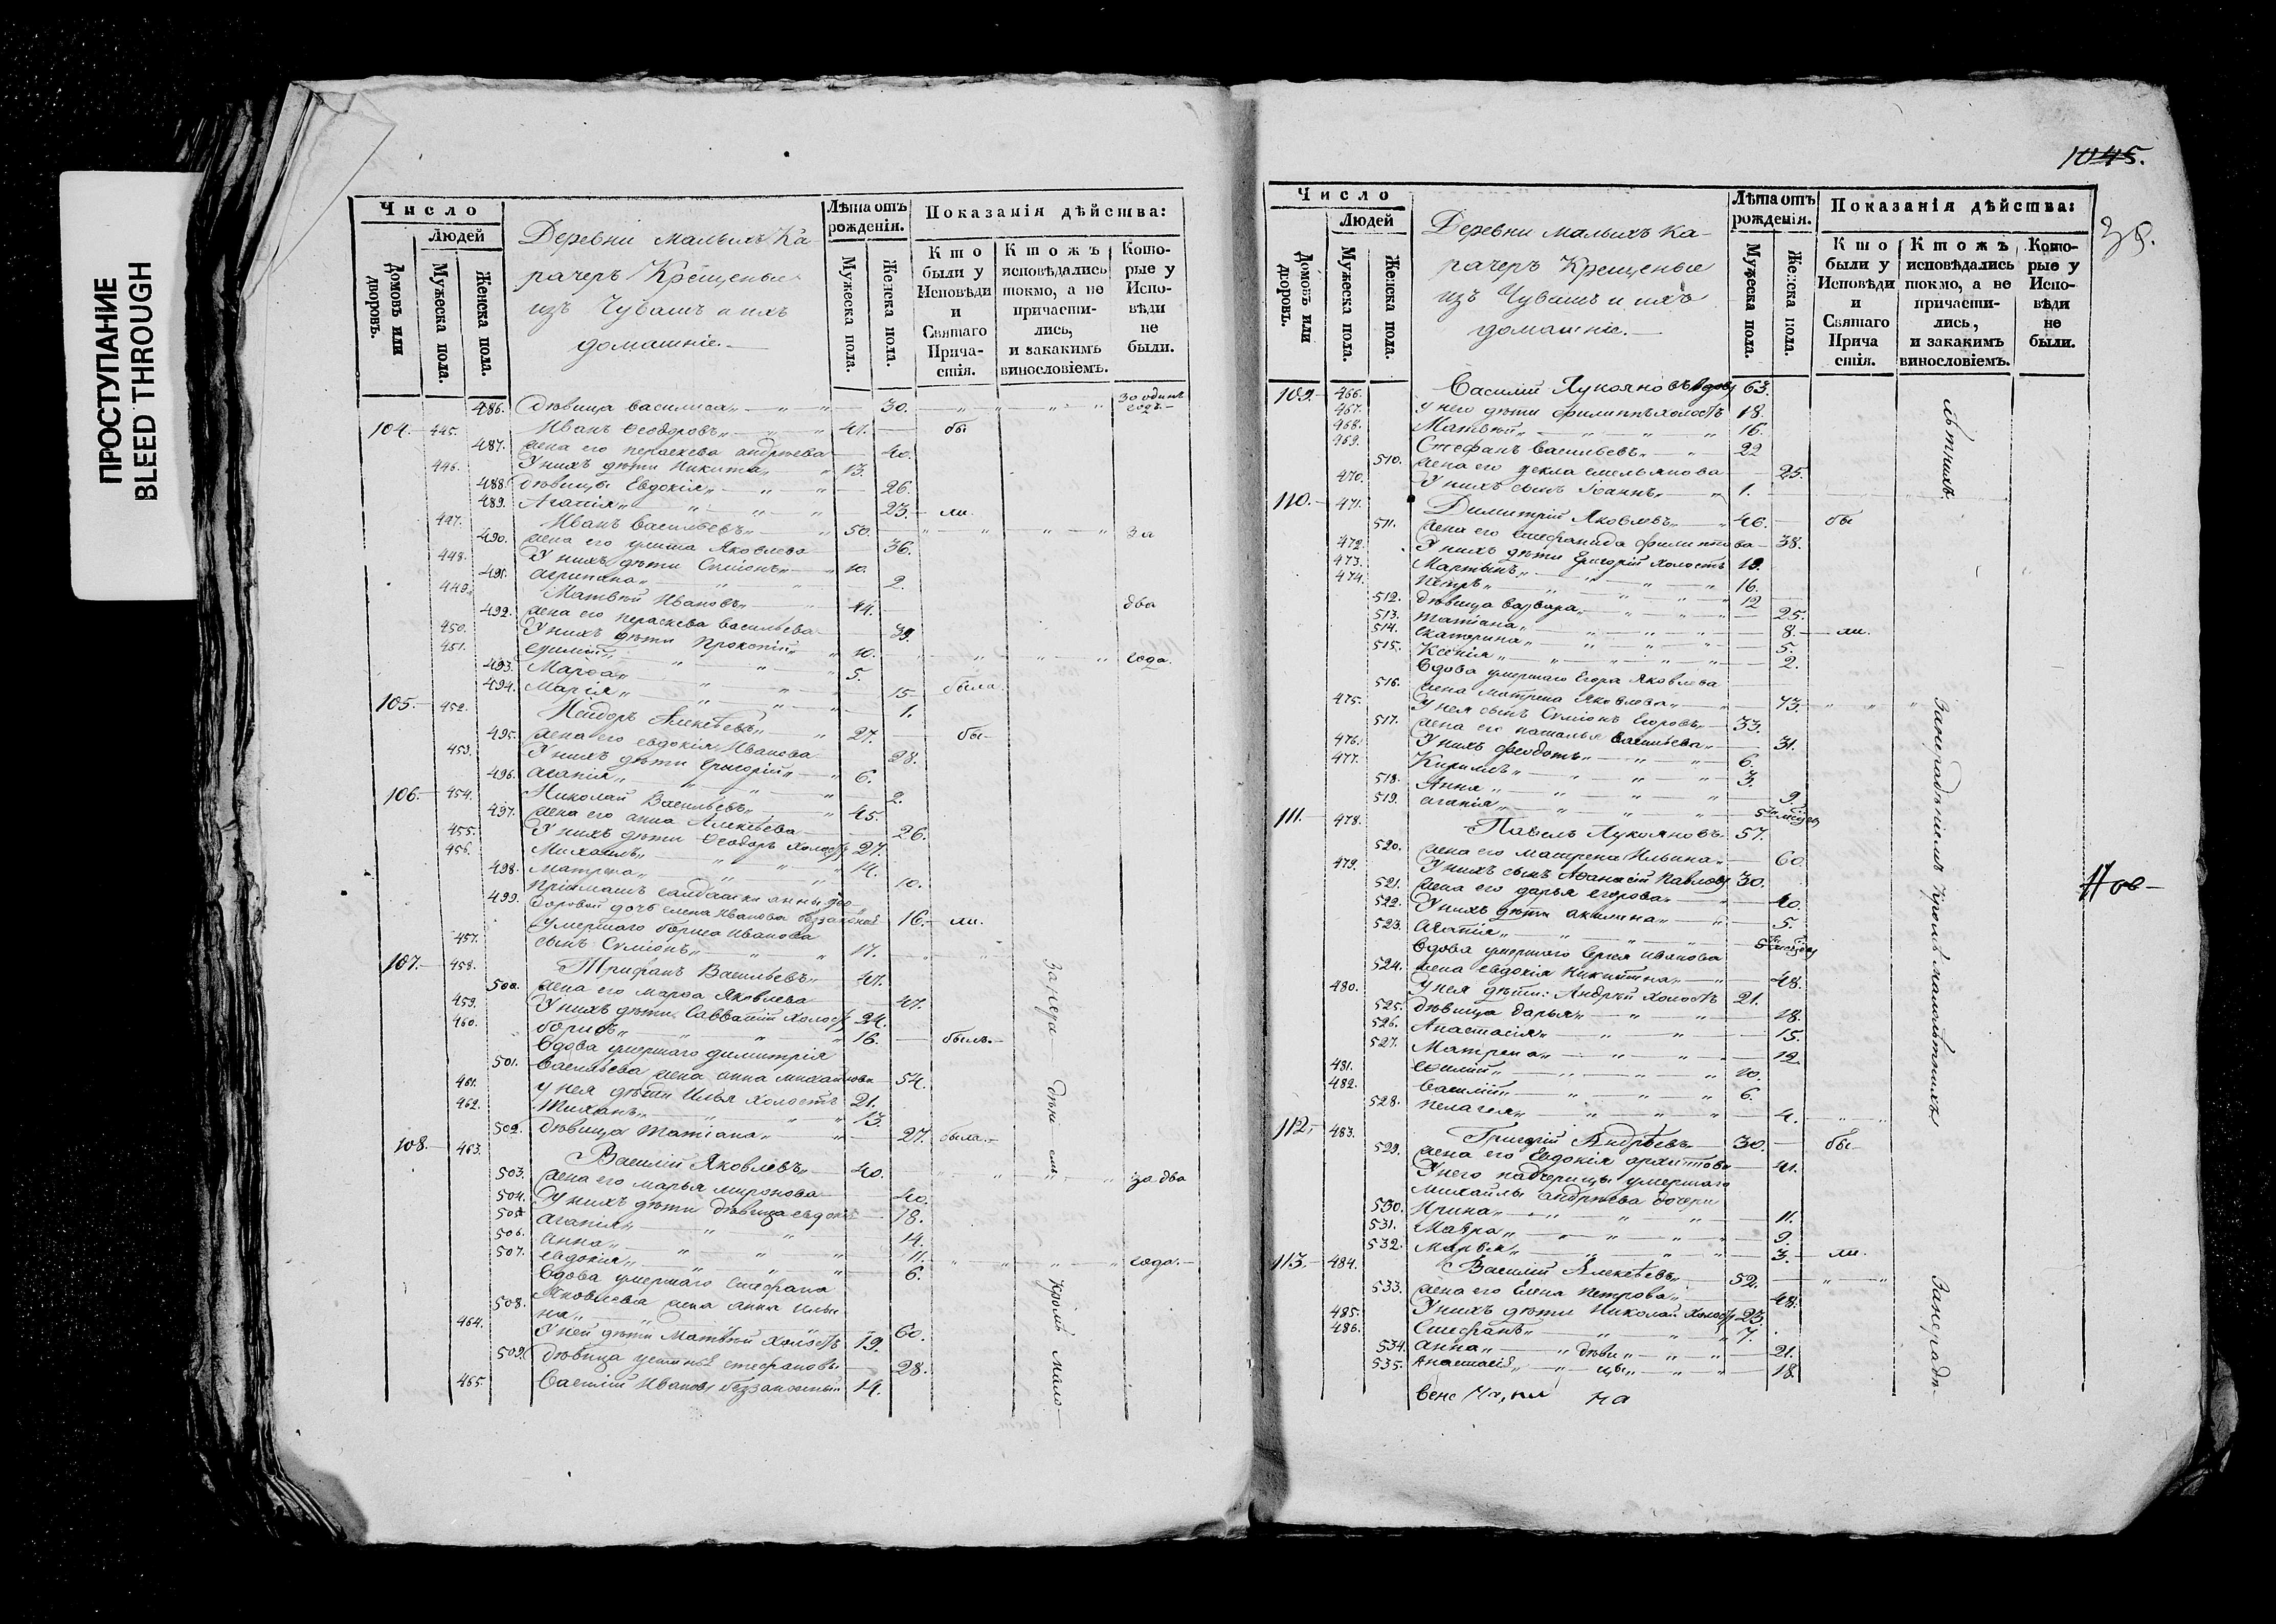 ПРОСТУПАНИЕ
BLEED THROUGH
Число
Людей
Домовъ или дворовъ.
Мужеска пола.
Женска пола.
Деревни малыхъ Ка-
рачеръ Крещеные
изъ Чувашъ и ихъ
домашніе.
Лѣта отъ рожденія.
Мужеска пола.
Женска пола.
Показанія дѣйства:
Кто были у Исповѣди и Святаго Прича-стія.
Ктожъ исповѣдались токмо, а не причасти-лись, и закакимъ винословіемъ.
Кото-рые у Испо-вѣди не были.
486. дѣвица Василиса 30. за одинъ годъ.
104. 445. Иванъ Ѳеодоровъ 41. бы
487. жена его параскева андрѣева 40.
446. У нихъ дѣти Никита 13.
488. дѣвицы Евдокія 26.
489. Агапія 23. ли.
447. Иванъ Васильевъ 50. за
490. жена его улита Яковлева 36.
448. У нихъ дѣти Симіонъ 10.
491. агрипина 2.
449. Матвѣй Ивановъ 44. два
492. жена его параскева васильева 39.
450. У нихъ дѣти Прокопій 10.
451. 5. года.
493. Марѳа 15. была
494. Марія 1.
105. 452. Алексѣевъ 27. бы-
495. жена его евдокія Иванова 28.
453. У нихъ дѣти Григорій 6.
496. агапія 2.
106. 454. Николай Васильевъ 45.
497. жена его анна Алексѣева 26.
455. У нихъ дѣти Ѳеодоръ холостъ 27.
456. Михаилъ 14.
498. матрена 10.
пріимашъ салдатки анны Ѳео-
499. доровой дочь елена Иванова 16. ли.
умершаго бориса иванова
457. сынъ Симіонъ 17.
107. 458. Трифанъ Васильевъ 47.
500. жена его марѳа Яковлева 47.
459. У нихъ дѣти Савватій холостъ 24.
460. борисъ 16. былъ.
Вдова умершаго димитрія
501. Васильева жена анна михайлова 54.
461. у нея дѣти Илья холостъ 21.
462. Тиханъ 13.
502. дѣвица Татіана 27. была.
108. 463. Василій Яковлевъ 40. за два
503. жена его марья миронова 40.
504. У нихъ дѣти дѣвица евдокія 18.
505. агапія 14.
506. анна 11.
507. евдокія 6. года.
Вдова умершаго Стефана
508. Яковлева жена анна ильи-
на 60.
464. У ней дѣти Матвѣй холостъ 19.
509. дѣвица устинья стефанова 28.
465. Василій Ивановъ 14.
Кромѣ мало-
1045.
39.
Число
Людей
Домовъ или дворовъ.
Мужеска пола.
Женска пола.
Деревни малыхъ Ка-
рачеръ Крещеные
изъ Чувашъ и ихъ
домашніе.
Лѣта отъ рожденія.
Мужеска пола.
Женска пола.
Показанія дѣйства:
Кто были у Исповѣди и Святаго Прича стія.
Ктожъ исповѣдались токмо, а не причасти-лись, и закакимъ винословіемъ.
Кото-рые у Испо-вѣди не были.
109. 466. Василій Лукояновъ вдовъ 63.
467. У него дѣти филиппъ холостъ 18.
468. Матвѣй 16.
469. Стефанъ Васильевъ 22
510. жена его Ѳекла емельянова 25.
470. У нихъ сынъ Іоаннъ 1.
110. 471. Димитрій Яковлевъ 46. бы
511. жена его стефанида филиппова 38.
472. У нихъ дѣти Григорій холостъ 19.
473. Мартынъ 16.
474. петръ 12
512. дѣвица варвара 25.
513. татіана 8. ли.
514. екатерина 5.
515. Ксенія 2.
Вдова умершаго Егора Яковлева
516. жена матрена Яковлева 73.
475. У нея сынъ Симіонъ Егоровъ 33.
517. жена его наталья васильева 31.
476. У нихъ Ѳеодотъ 6.
477. Кирилъ 3.
518. Анна 9.
519. агапія
111. 478. Павелъ Лукояновъ 57.
520. жена его матрена Ильина 60.
479. У нихъ сынъ Аѳанасій Павловъ 30.
521. жена его дарья егорова 40.
522. У нихъ дѣти акилина 5.
523. Агапія
Вдова умершаго Сергея иванова
524. жена евдокія никитина 48.
480. У нея дѣти: Андрѣй холостъ 21.
525. дѣвица дарья 18.
526. Анастасія 15.
527. Матрена 12.
481. 10.
482. Василій 6.
528. пелагея 4.
112. 483. Григорій Андрѣевъ 30. бы
529. жена его Евдокія архипова 41.
У него падчерицы умершаго
михайлы андрѣева дочери
530. Ирина 11.
531. Мавра 9.
532. Марья 3. ли.
113. 484. Василій Алексѣевъ 52.
533. жена его Елена петрова 48.
485. У нихъ дѣти Николай холостъ 23.
486. Стефанъ 7.
534. анна дѣви- 21.
535. анастасія цы 18.
лѣтнихъ.
Занерадѣніемъ Кромѣ малолѣтнихъ
Занерадѣ-